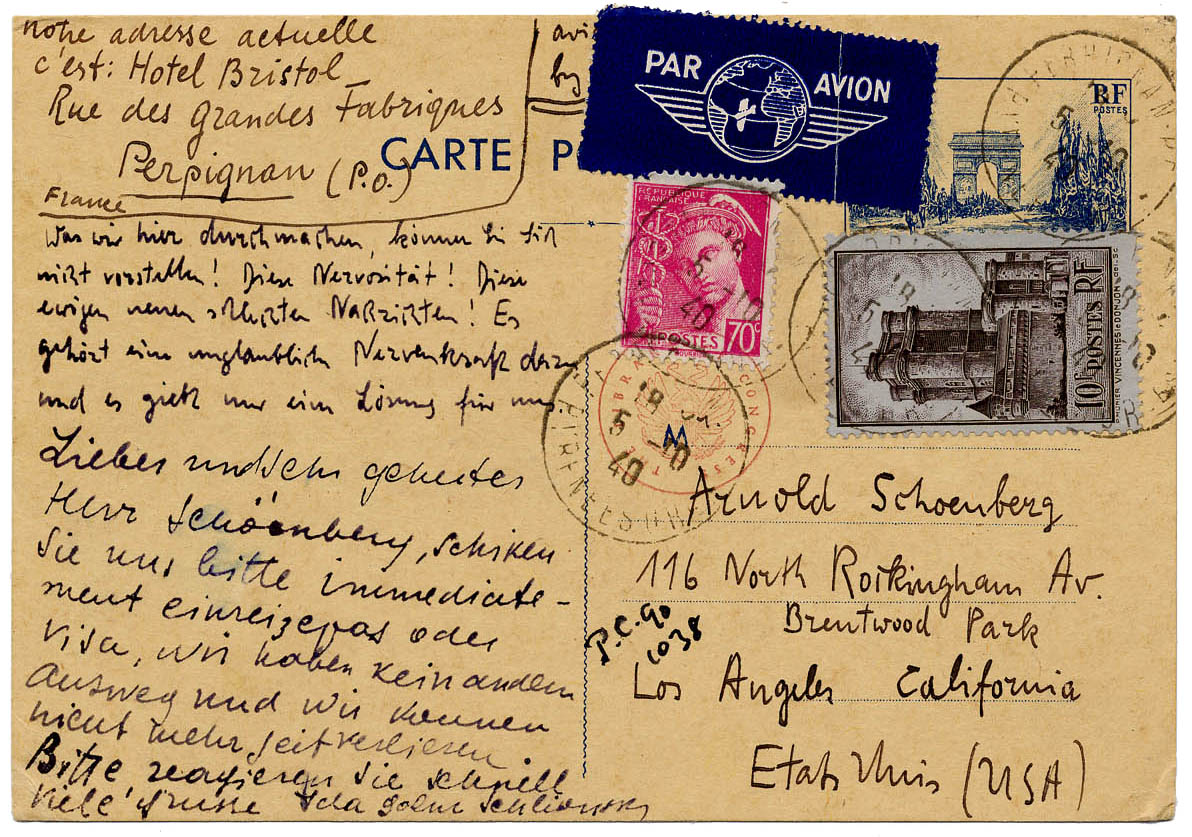 notre adresse actuelle
c'est: Hotel Bristol
Rue des Grandes Fabriques
Perpignan (P.O.)
France
Was wir hier durchmachen, können Sie sich
nicht vorstellen! Diese Nervosität! Diese
ewigen neuen schlechten Nachrichten! Es
gehört eine unglaubliche Nervenkraft dazu
und es giebt nur eine Lösung für uns.
Liebes und sehr geehrtes
Herr Schöenberg, schiken
Sie uns bitte immediate-
ment einreizepas oder
Visa, wir haben kein andern
Ausweg und wir kennen
nicht mehr Zeit verlieren
Bitte reagieren Sie schnell
Viele Grusse Ida
avi
by
PAR AVION
CARTE P
RF
POSTES
REPUBLIQUE
FRANÇAISE
POSTES
70c
10F POSTES RF
VINCENNES DONJON
18
5
40
THE LIBRARY OF CONGRESS
M
Arnold Schoenberg
116 North Rockingham Av.
Brentwood Park
P.C. 90
1038
Los Angeles California
Etats Unis (USA)